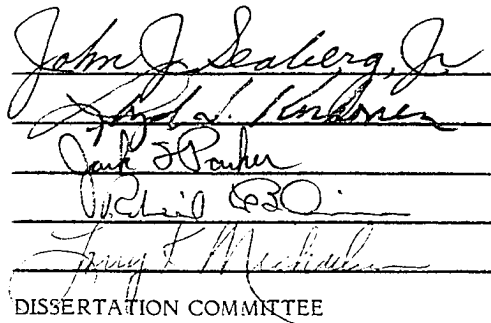 John J. Seaberg, Jr
Lloyd J. Korhonen
Jack F Parker
Richard
Larry K Michaelsen
DISSERTATION COMMITTEE